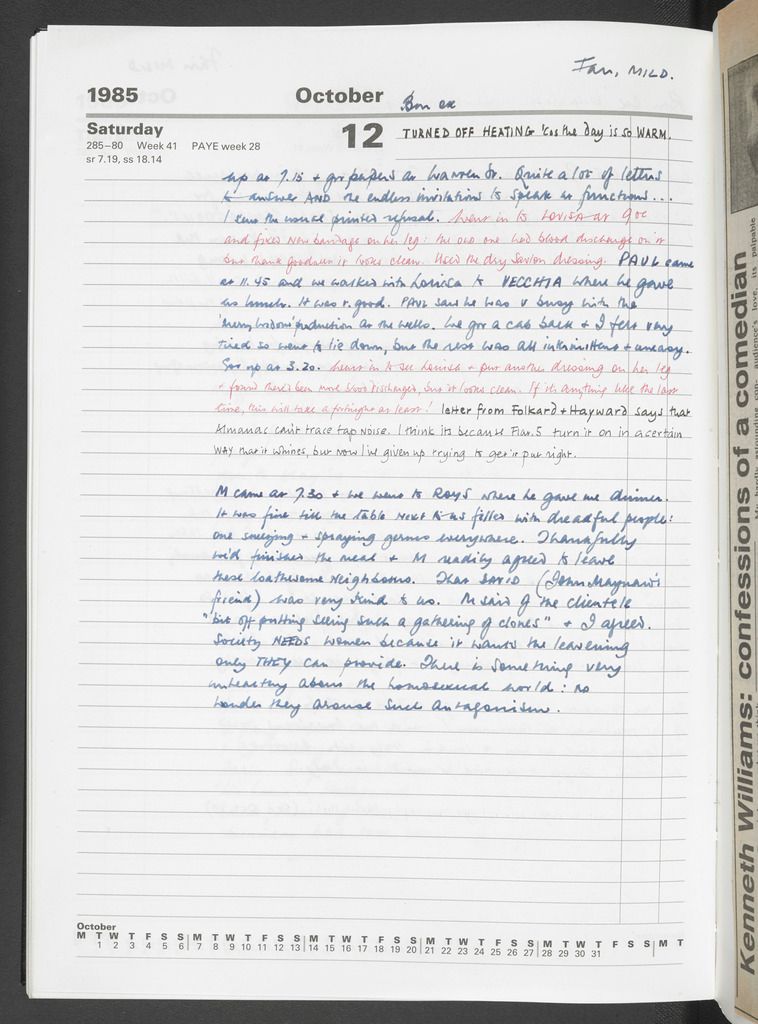 Fair, MILD.
1985 October Bon ex
Saturday 12 TURNED OFF HEATING 'cos the day is so WARM.
285–80 Week 41 PAYE week 28
sr 7.19, ss 18.14
up at 7.15 + got papers at Warren St. Quite a lot of letters
to answer AND the endless invitations to speak at functions...
I send the usual printed refusal. Went in to LOUISA at 9 oc
and fixed new bandage on her leg: the old one had blood discharge on it
but thank goodness it looks clean. Used the dry Savlon dressing. PAUL came
at 11.45 and we walked with Louisa to VECCHIA where he gave
us lunch. It was v. good. PAUL said he was v busy with the
'merry widow' production at the wells. We got a cab back + I felt very
tired so went to lie down, but the rest was all intermittent + uneasy.
Got up at 3.20. Went in to see Louisa + put another dressing on her leg
+ found there'd been more blood discharged, but it looks clean. If it's anything like the last
time, this will take a fortnight at least! letter from Folkard + Hayward says that
Almanac can't trace tap noise. I think its because Flat. 5 turn it on in a certain
WAY that it whines, but now I've given up trying to get it put right.
M came at 7.30 + we went to ROYS where he gave me dinner.
It was fine till the table next to us filled with dreadful people:
one sneezing + spraying germs everywhere. Thankfully
we'd finished the meal + M readily agreed to leave
these loathsome neighbours. That DAVID (John Maynard's
friend) was very kind to us. M said of the clientele
"bit off-putting seeing such a gathering of clones" + I agreed.
Society NEEDS women because it wants the leavening
only THEY can provide. There is something very
unhealthy about the homosexual world: no
wonder they arouse such antagonism.
October
M T W T F S S M T W T F S S M T W T F S S M T W T F S S M T W T F S S M T
1 2 3 4 5 6 7 8 9 10 11 12 13 14 15 16 17 18 19 20 21 22 23 24 25 26 27 28 29 30 31
Kenneth Williams: confessions of a comedian